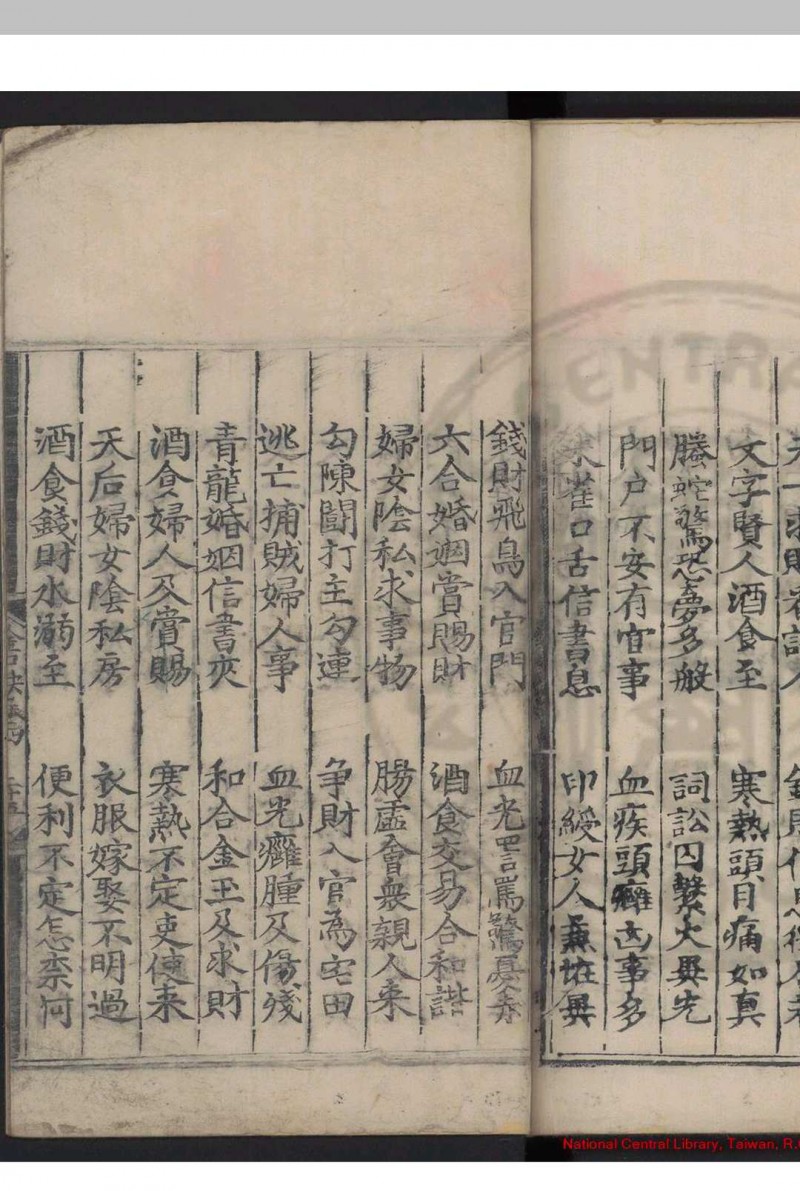 天一求財君請人 錢財
文字賢人酒食至 寒熱頭目痛如真
螣蛇驚恐夢多般 詞訟囚繫火異光
門户不安有官事 血疾頭癰凶事多
朱雀口舌信書息 印綬女人兼怪異
錢財飛鳥入官門 血光詈罵驚憂奔
六合婚姻賞賜財 酒食交易合和諧
婦女陰私求事物 腸虛會衆親人來
勾陳鬪打主勾連 争財入官為宅田
逃亡捕賊婦人事 血光癰腫及傷殘
青龍婚姻信書夾 和合金玉及求財
酒食婦人及賞賜 寒熱不定吏使来
天后婦女陰私房 衣服嫁娶不明過
酒食錢財水溺至 便利不定怎柰何
National Central Library, Taiwan, R.